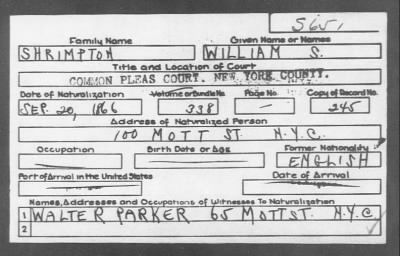 S651
Family Name Given Name or Names
SHRIMPTON WILLIAM S.
Title and Location of Court
COMMON PLEAS COURT. NEW YORK COUNTY.
Date of Naturalization Volume or Bundle No Page No Copy of Record No.
SEP. 20, 1866 338 — 245
Address of Naturalized Person
100 MOTT ST. N.Y.C.
Occupation Birth Date or Age Former Nationality
ENGLISH
Port of Arrival in the United States Date of Arrival
Names, Addresses and Occupations of Witnesses To Naturalization
1 WALTER PARKER 65 MOTT ST. N.Y.C.
2